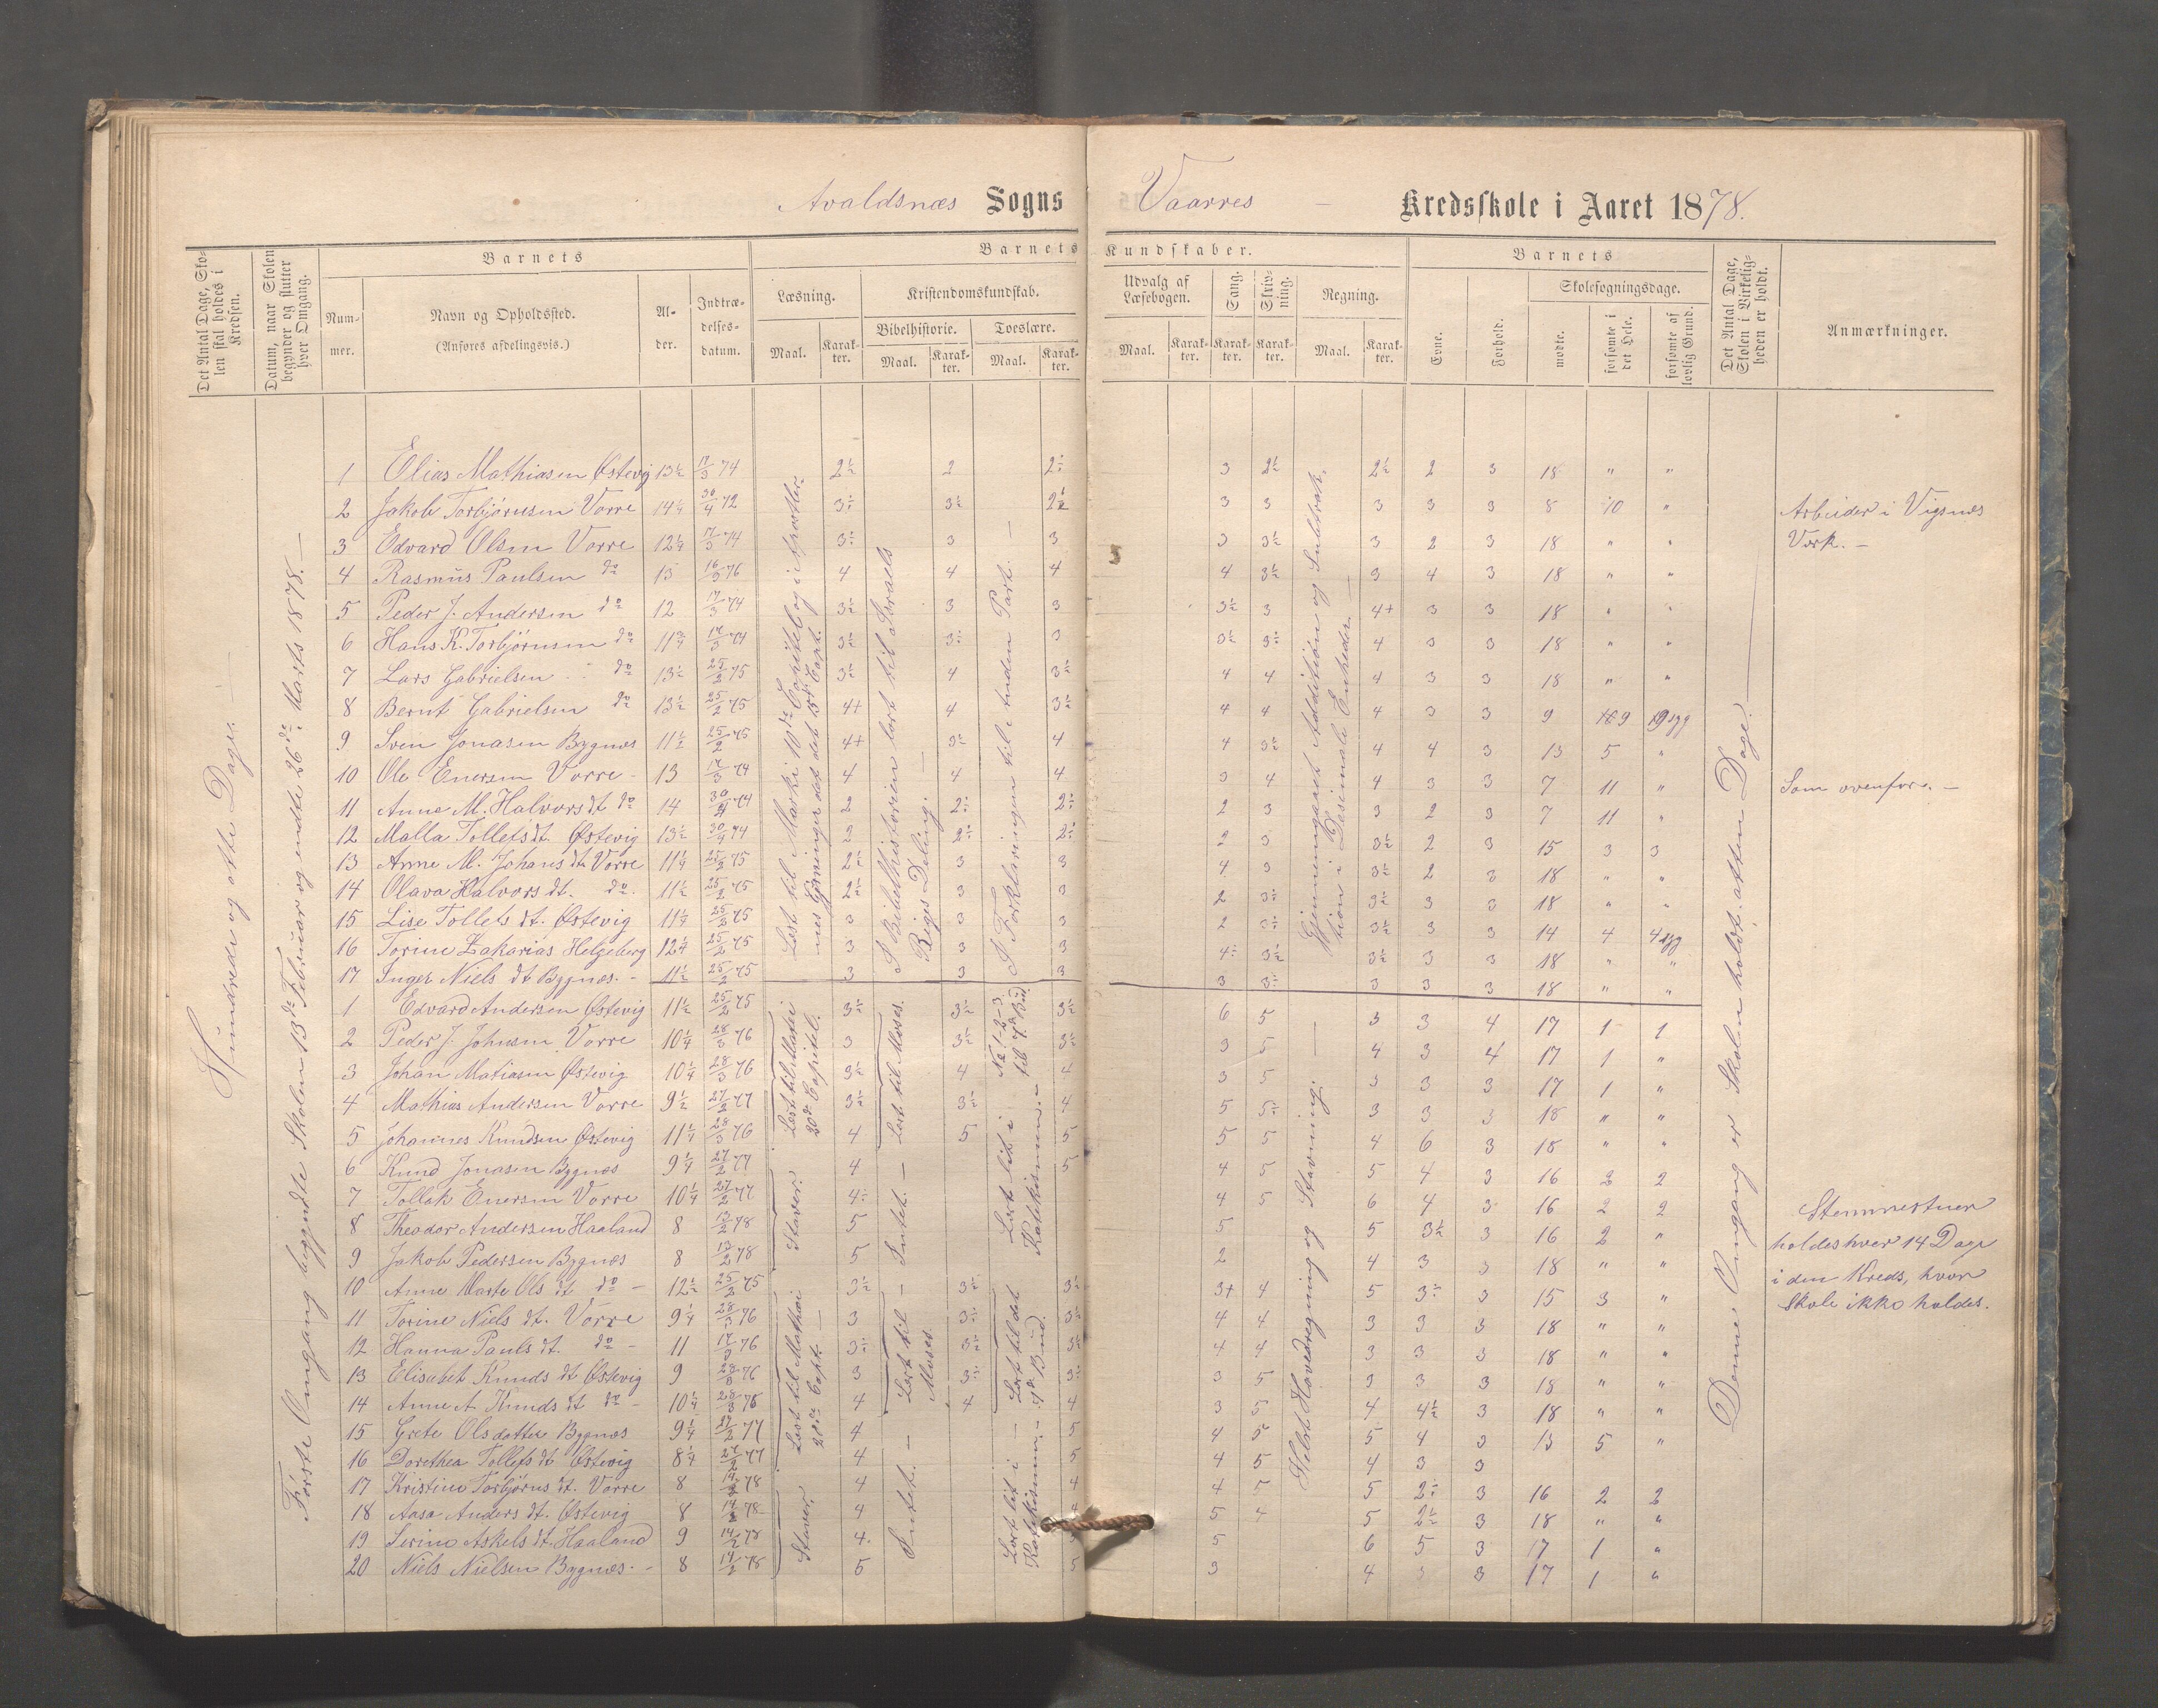 Avaldsnæs Sogns Vaarres - Kredsskole i Aaret 1878.
Det Antal Dage, Skolen skal holdes i Kredsen.
Datum, naar Skolen begynder og slutter hver Omgang.
Barnets
Nummer.
Navn og Opholdssted.
(Anføres afdelingsvis.)
Alder.
Indtrædelsesdatum.
Barnets Kundskaber.
Læsning.
Maal. Karakter.
Kristendomskundskab.
Bibelhistorie.
Maal. Karakter.
Troeslære.
Maal. Karakter.
Udvalg af Læsebogen.
Maal. Karakter.
Sang. Karakter.
Skrivning. Karakter.
Regning.
Maal. Karakter.
Barnets
Evne.
Forhold.
Skolesøgningsdage.
mødte.
forsømte i det Hele.
forsømte af lovlig Grund.
Det Antal Dage, Skolen i Virkeligheden er holdt.
Anmærkninger.
Hundrede og otte Dage. —
Første Omgang begyndte Skolen 13de Februar og endte 26de Marts 1878. —
1 Elias Mathiasen Østevig 13½ 17/3 74 2½ 2 2÷ 3 2½ 2½ 2 3 18 " "
2 Jakob Torbjørnsen Vorre 14¼ 30/4 72 3÷ 3½ 2½ 3 3 3 3 3 8 10 " Arbeider i Vigsnæs
3 Edvard Olsen Vorre 12¼ 17/3 74 3÷ 3 3 3 3½ 3 2 3 18 " " Værk. —
4 Rasmus Paulsen do 15 16/3 76 4 4 4 4 3½ 3 4 3 18 " "
5 Peder J. Andersen do 12 17/3 74 3½ 3 3 3½ 3 4+ 3 3 18 " "
6 Hans K. Torbjørnsen do 11¾ 17/3 74 3½ 3÷ 3 3½ 3÷ 4 3 3 18 " "
7 Lars Gabrielsen do 13½ 25/2 75 3½ 4 3½ 4 4 4 3 3 18 " "
8 Bernt Gabrielsen do 13½ 25/2 75 4+ 4 3½ 4 4 4 3 3 9 9 9 syg
9 Sven Jonasen Bygnæs 11½ 25/2 75 4+ 3½ 4 4 3½ 4 4 3 13 5 "
10 Ole Enersen Vorre - 13 17/3 74 4 4 4 3 4 4 3 3 7 11 " Som ovenfor. —
11 Anne M. Halvorsdt do 14 30/4 74 2 2÷ 2÷ 2 3 3 2 3 7 11 "
12 Malla Tollefsdt. Østevig 13½ 30/4 74 2 2½ 2÷ 2 3 3½ 2 3 15 3 3
13 Anne M. Johansdt. Vorre 11¼ 25/2 75 2½ 3 3 4 3 3½ 2 3 18 " "
14 Olava Halvorsdt. do. 11½ 25/2 75 2½ 3 3 2 3÷ 3½ 3 3 18 " "
15 Lise Tollefsdt. Østevig 11¼ 25/2 75 3 3 3 2 3÷ 3½ 3 3 14 4 4 syg
16 Torine Zakarias Helgeberg 12¼ 25/2 75 3 3 3 4÷ 3½ 3½ 3 3 18 " "
17 Inger Niels dt Bygnæs. - 11½ 25/2 75 3 3 3 3 3÷ 3 3 3 18 " "
Læst til Marki 10de Capitel og i Apostlernes Gjerninger det 15de Capt.
I Bibelhistorien lært til Israels Riges Deling. —
I Forklaringen til Anden Part. —
Gjennemgaaet Addition og Subtraktion i Desimale Enheder. —
1 Edvard Andersen Østevig 11½ 25/2 75 3½ 3½ 3½ 6 5 3 3 4 17 1 1
2 Peder J. Johnsen Vorre 10¼ 28/3 76 3 3½ 3½ 3 5 4 3 4 17 1 "
3 Johan Matiasen Østevig 10¼ 28/3 76 3½ 4 4 3 5 3 3 3 17 1 "
4 Mathias Andersen Vorre 9½ 27/2 77 3½ 3½ 4 5 5÷ 3 3 3 18 " "
5 Johannes Knudsen Østevig 11¼ 28/3 76 4 5 5 5 5 4 6 3 18 " "
6 Knud Jonasen Bygnæs 9¼ 27/2 77 4 5 4 5 5 4 3 16 2 2
7 Tollak Enersen Vorre 10¼ 27/2 77 4÷ 4 5 6 4 3 16 2 2
8 Theodor Andersen Haaland 8 13/2 78 5 5 5 3½ 3 16 2 " Stemnestuer
9 Jakob Pedersen Bygnæs 8 13/2 78 5 2 4 3 3 18 " " holdes hver 14 Dage
10 Anne Marte Ols dt do - 12½ 25/2 75 3½ 3½ 3½ 3+ 4 5 3÷ 3 15 3 " i den Kreds, hvor
11 Torine Niels dt. Vorre 9¼ 28/3 76 3 3÷ 3½ 4 4 3 3 3 18 " " Skole ikke holdes.
12 Hanna Pauls dt. do - 11 17/3 76 3÷ 3½ 3½ 4 4 3 3 3 18 " "
13 Elisabet Knuds dt Østevig 9 28/3 76 3 3÷ 3÷ 3 5 3 3 3 18 " "
14 Anne A Knuds dt do - 10¼ 28/3 76 4 4 4 3 5 4 4½ 3 18 " "
15 Grete Olsdatter Bygnæs 9¼ 27/2 77 4 5 4 5 5 4 3 13 5 "
16 Dorethea Tollefs dt Østevig 8¼ 27/2 77 4 5 4 5 4 3 3
17 Kristine Torbjørns dt. Vorre 8 14/2 78 4 4 4 5 5 2÷ 3 16 2 2
18 Aasa Anders dt. Østevig 8 14/2 78 4 4 5 4 5 2½ 3 18 " "
19 Serine Askels dt. Haaland 9 14/2 78 4. 5 6 5 3 17 1 "
20 Niels Nielsen Bygnæs. - 8 14/2 78 5 5 3 4 3 3 17 1 "
Læst til Matæi 20de Capitel.
Staver.
Læst til Mathæi 20de Capt. —
Staver.
Lært til Moses.
Intet. —
Lært til Moses
Intet. —
No 1-2-3 til 7de Bud
Lært lit i Katekismen. -
Lært til det 4de Bud.
Lært lit i — Katekismen. -
Helst Hovedregning og Stavning. —
Denne Omgang er Skolen holdt atten Dage. —